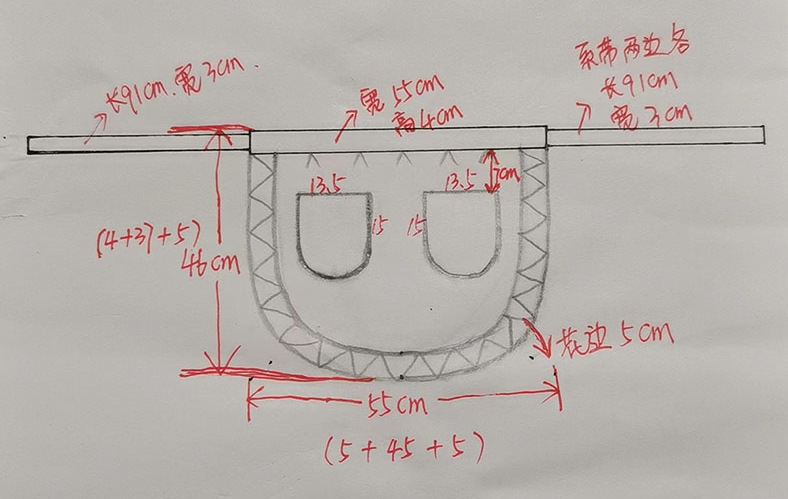 长91cm.宽3cm.
宽55cm
高4cm
系带两边各
长91cm
宽3cm
13.5
13.5
7cm
15
15
(4+37+5)
46cm
花边5cm
55cm
(5+45+5)